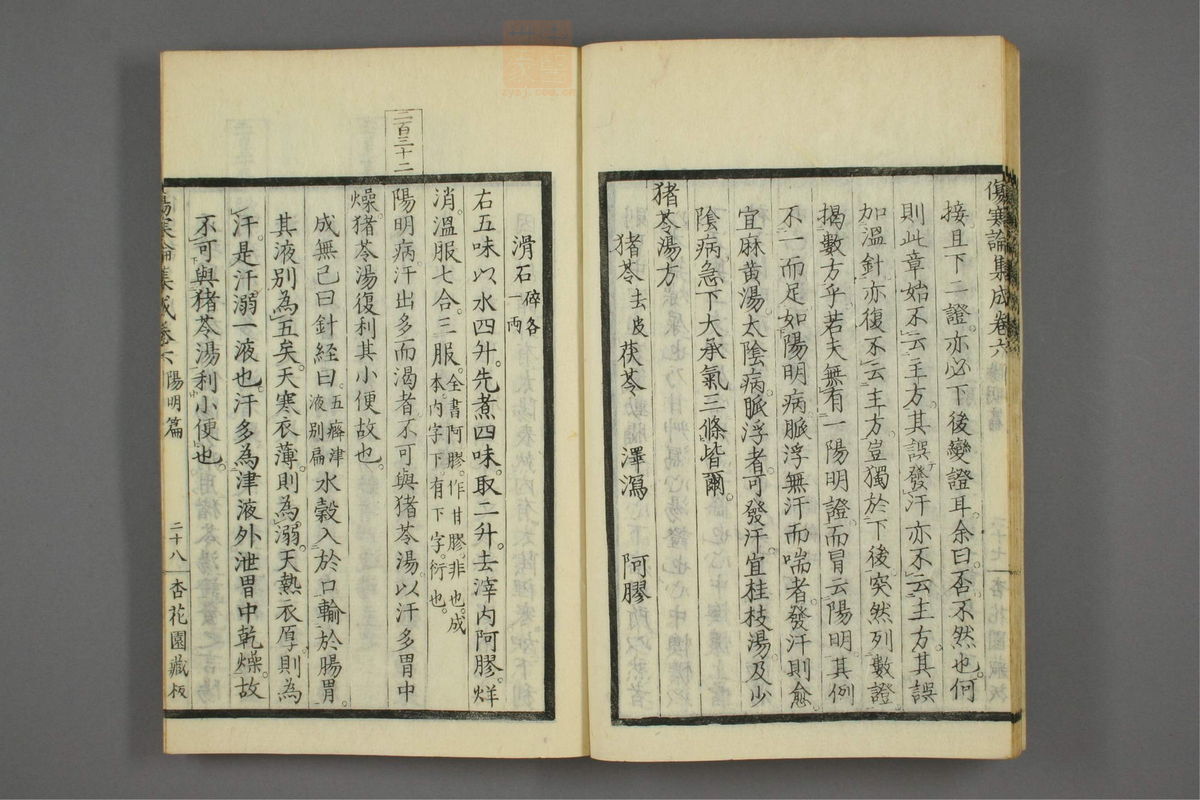 傷寒論集成卷六
接。且下二證。亦必下後變證耳。余曰。否。不然也。何
則此章始不云主方。其誤發汗亦不云主方。其誤
加溫針。亦復不云主方。豈獨於下後突然列數證
揭數方乎。若夫無有一陽明證。而冒云陽明。其例
不一而足。如陽明病。脈浮無汗而喘者。發汗則愈
宜麻黃湯。太陰病。脈浮者。可發汗。宜桂枝湯。及少
陰病急下大承氣三條。皆爾。
猪苓湯方
猪苓去皮 茯苓 澤瀉 阿膠
滑石碎各一兩
右五味。以水四升。先煮四味。取二升。去滓。內阿膠。烊
消。溫服七合。三服。全書阿膠。作甘膠。非也。成本。內字下有下字。衍也。
二百三十二
陽明病。汗出多而渴者。不可與猪苓湯。以汗多胃中
燥。猪苓湯復利其小便故也。
成無已曰。針經曰。五癃津液別扁 水穀入於口。輸於腸胃。
其液別為五矣。天寒衣薄。則為溺。天熱衣厚。則為
汗。是汗溺一液也。汗多為津液外泄。胃中乾燥。故
不可與猪苓湯利小便也。
傷寒論集成卷六 陽明篇 二十八 杏花園藏板